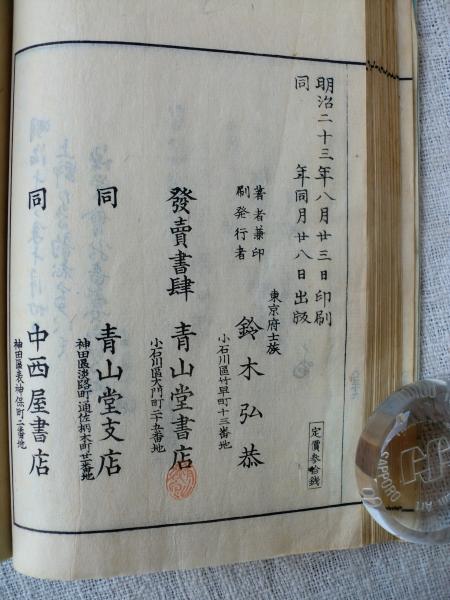 明治二十三年八月廿三日印刷
同年同月廿八日出版
定價參拾錢
著者兼印
刷発行者
東京府士族
鈴木弘恭
小石川區竹早町十三番地
發賣書肆
青山堂書店
小石川區大門町二十五番地
同
青山堂支店
神田區淡路町通佐柄木町廿一番地
同
中西屋書店
神田區表神保町二番地